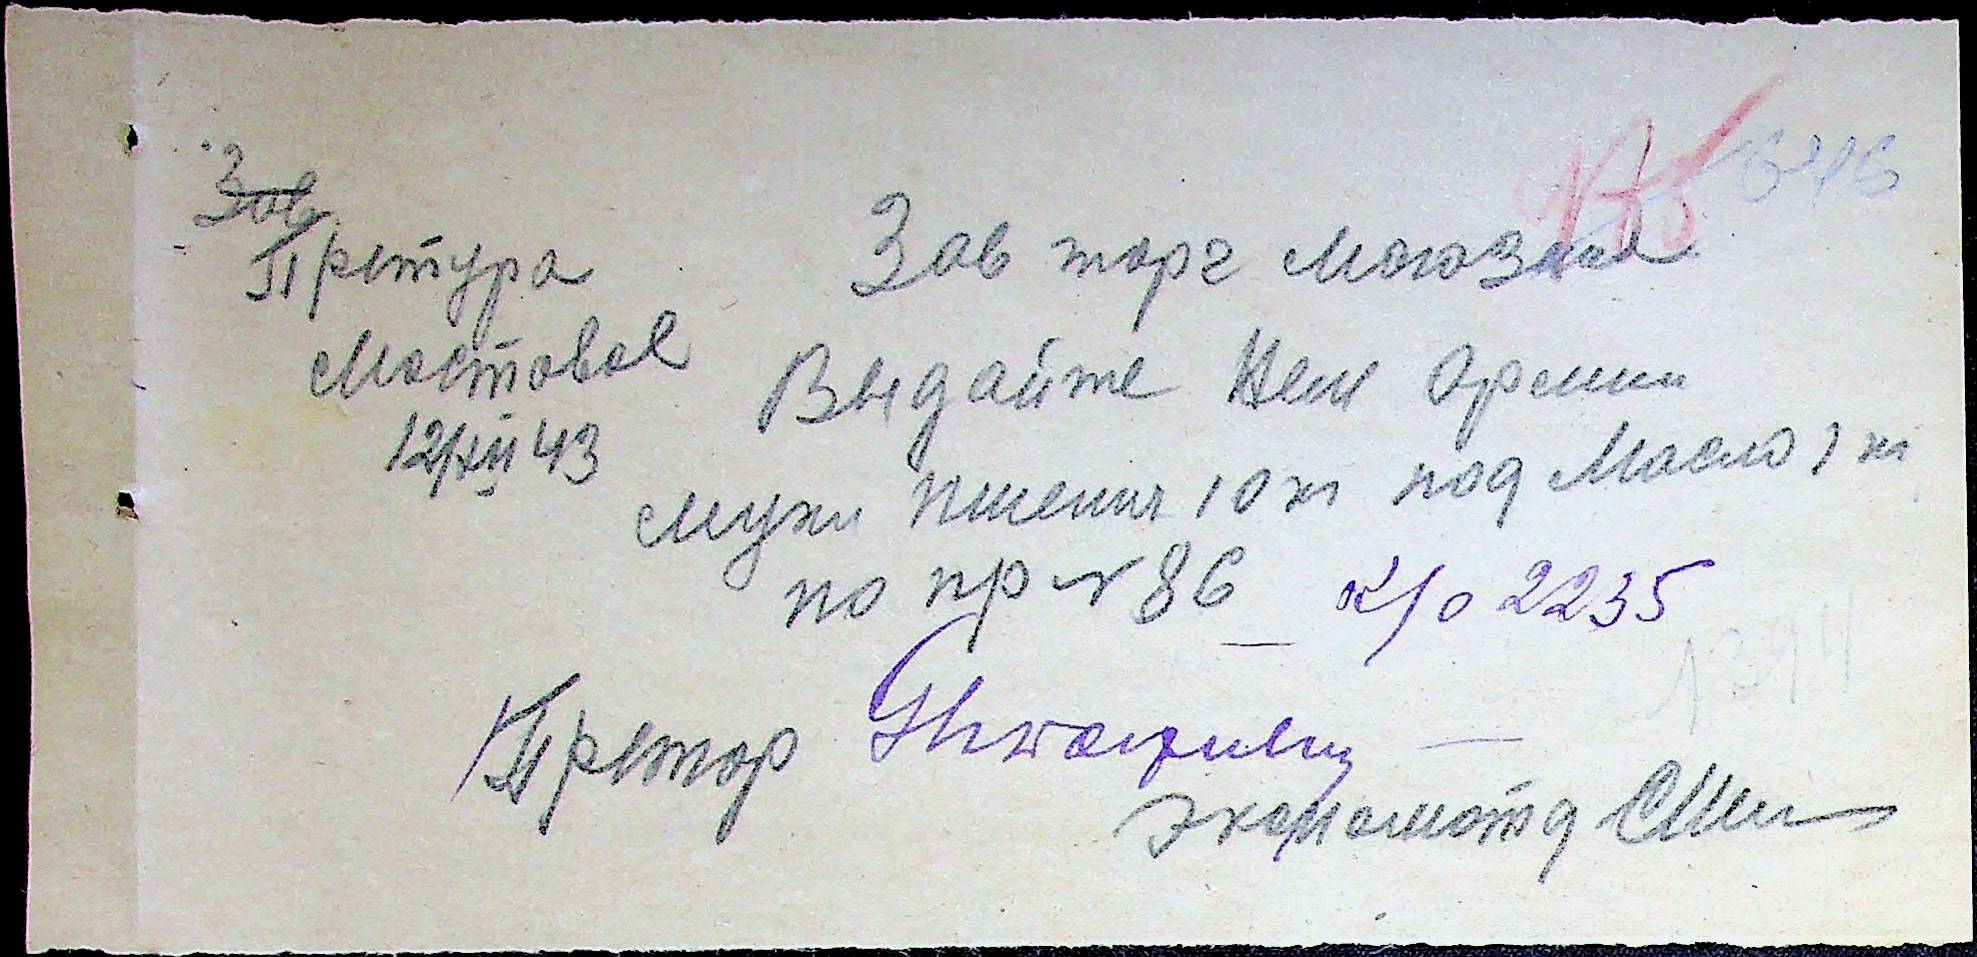 Зав
Претура
Мостовое
12/XII 43
646
Зав торг Магазина
Выдайте Нем Армии
муки пшенич 10 кг под Масло 1 кг
по пр № 86 к/о 2235
1394
Претор
экономотд